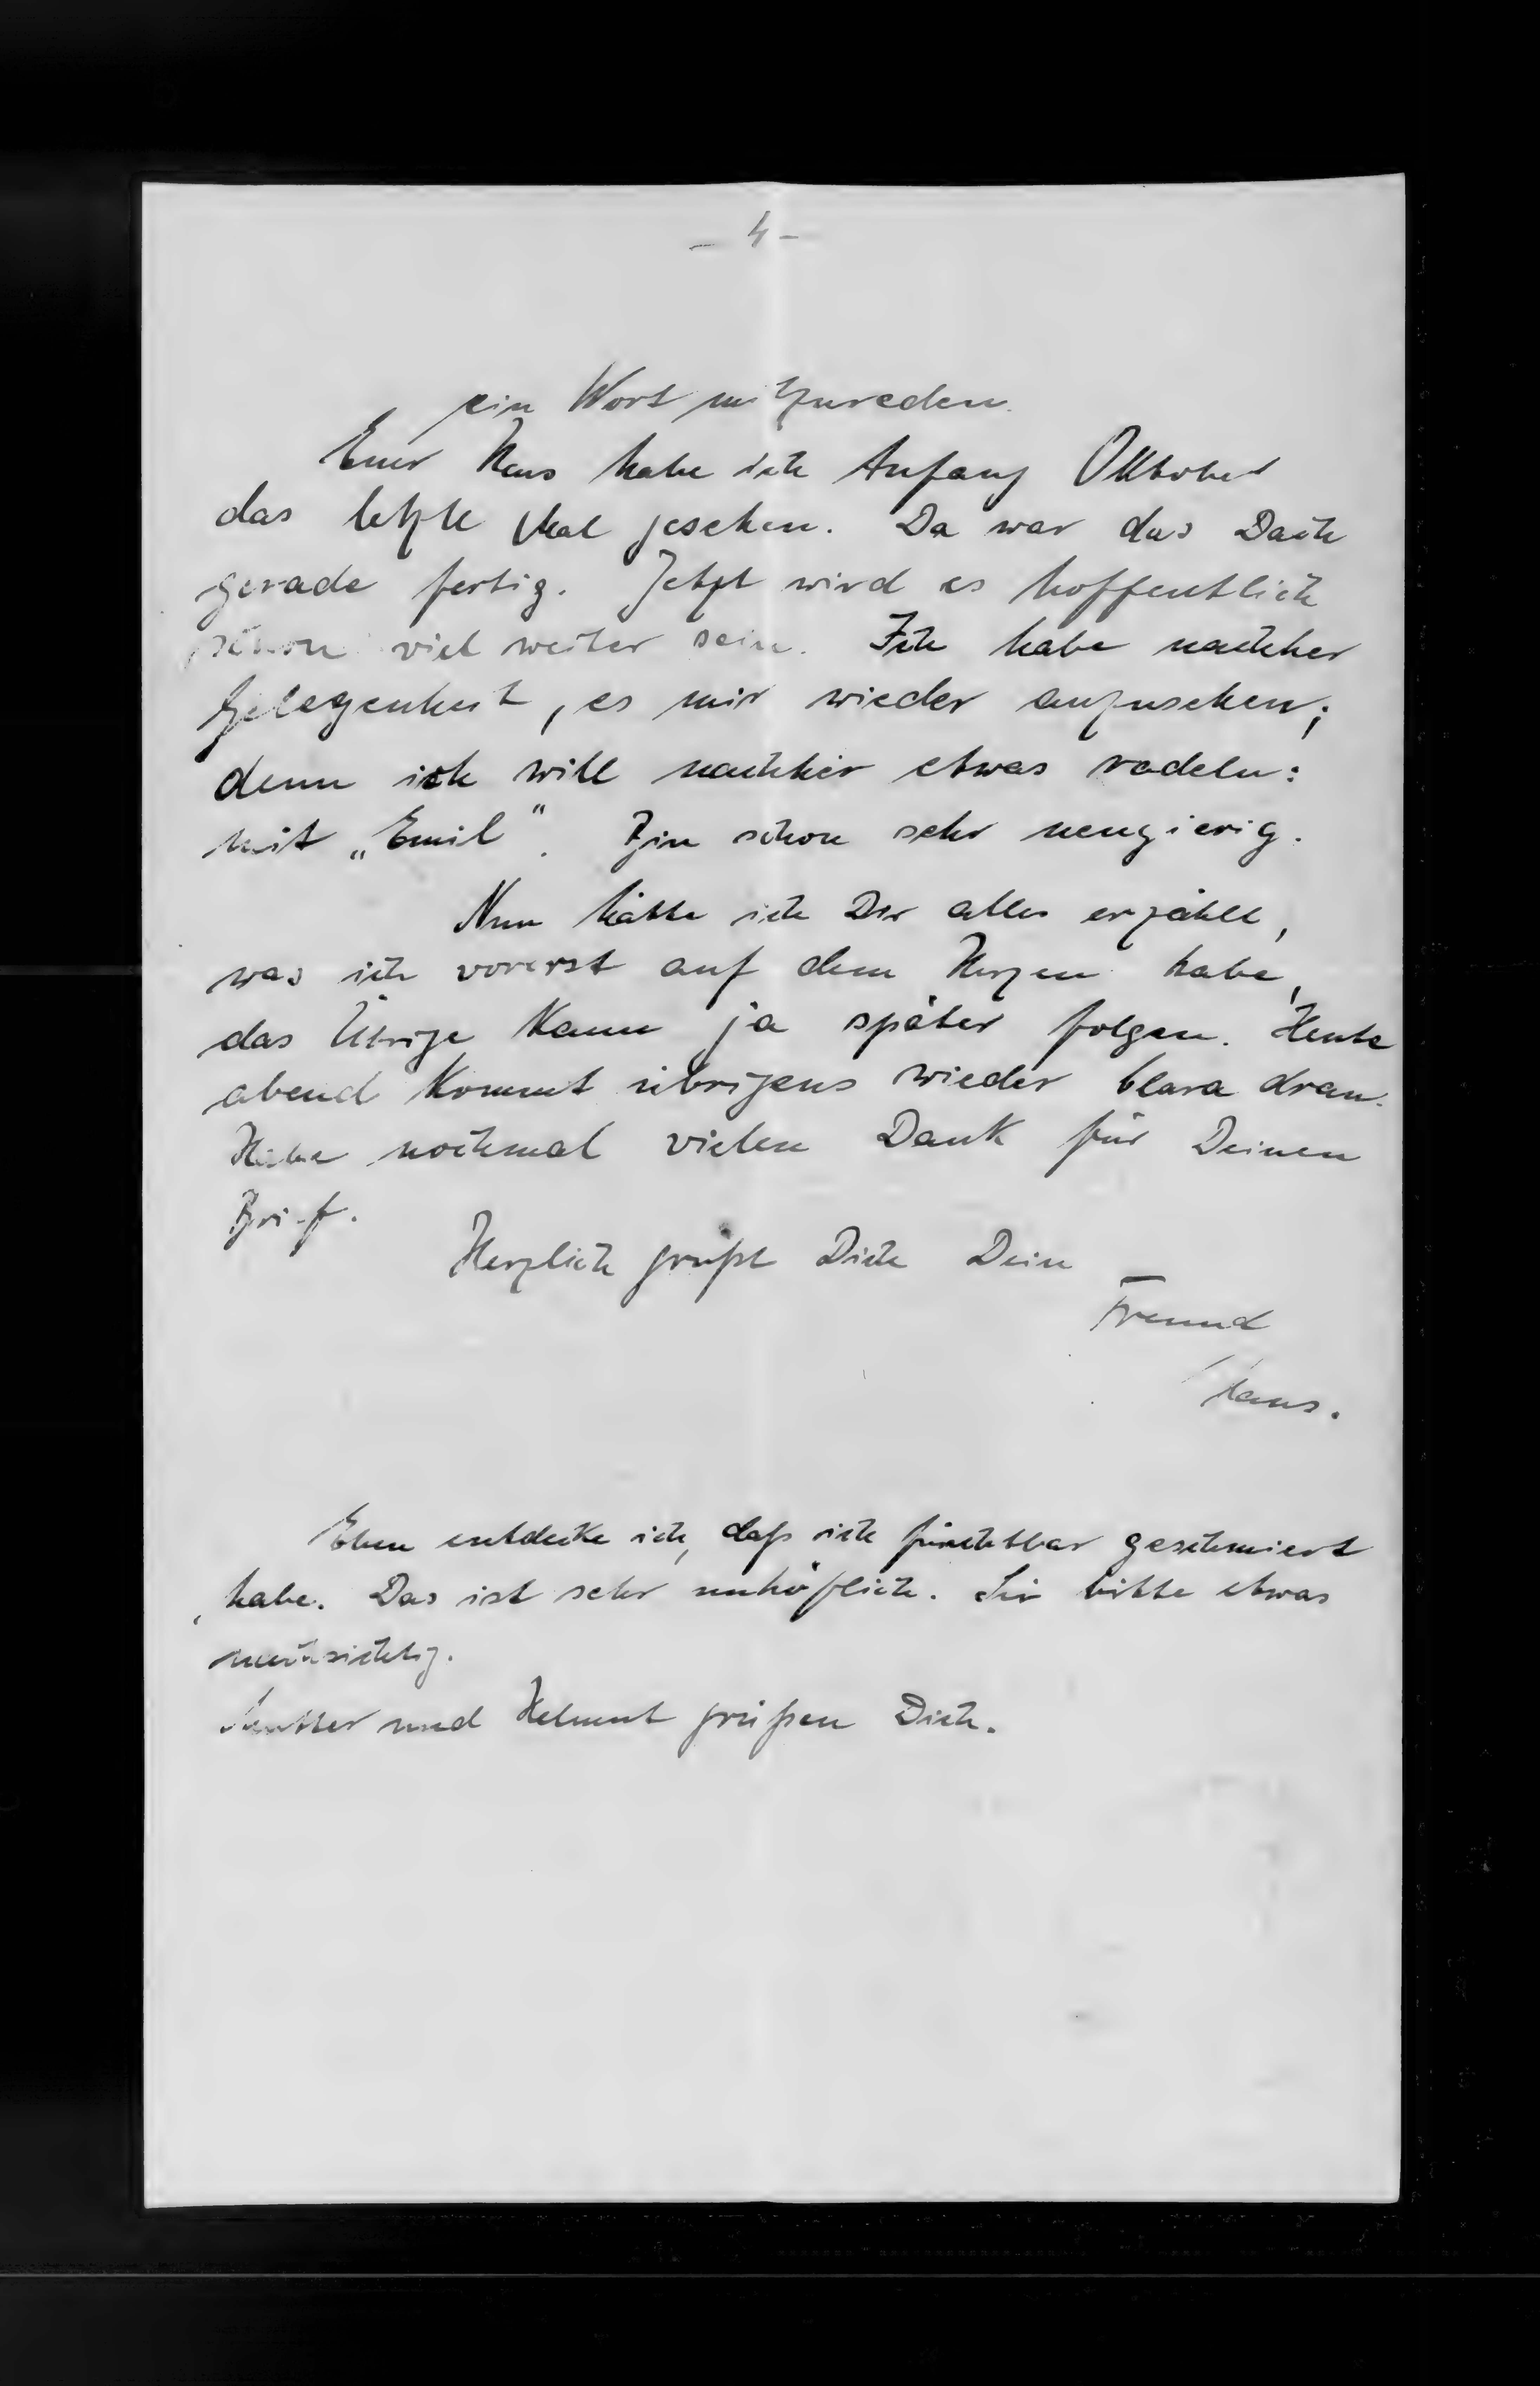 - 4 -
ein Wort mitzureden.
Euer Haus habe ich Anfang Oktober
das letzte Mal gesehen. Da war das Dach
gerade fertig. Jetzt wird es hoffentlich
schon viel weiter sein. Ich habe nachher
Gelegenheit, es mir wieder anzusehen;
denn ich will nachher etwas radeln:
mit „Emil“. Bin schon sehr neugierig.
Nun hätte ich Dir alles erzählt,
was ich vorerst auf dem Herzen habe,
das Übrige kann ja später folgen. Heute
abend kommt übrigens wieder Clara dran.
Habe nochmal vielen Dank für Deinen
Brief.
Herzlich grüßt Dich Dein
Freund
Hans.
Eben entdecke ich, daß ich furchtbar geschmiert
habe. Das ist sehr unhöflich. Sei bitte etwas
nachsichtig.
Mutter und Helmut grüßen Dich.